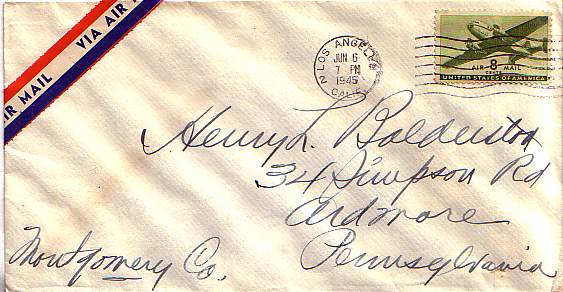 VIA AIR
IR MAIL
LOS ANGELES
JUN 6
7 PM
1945
2 CALIF.
AIR 8 MAIL
CENTS
UNITED STATES OF AMERICA
Henry L. Balderston
34 Simpson Rd
Ardmore
Pennsylvania
Montgomery Co.